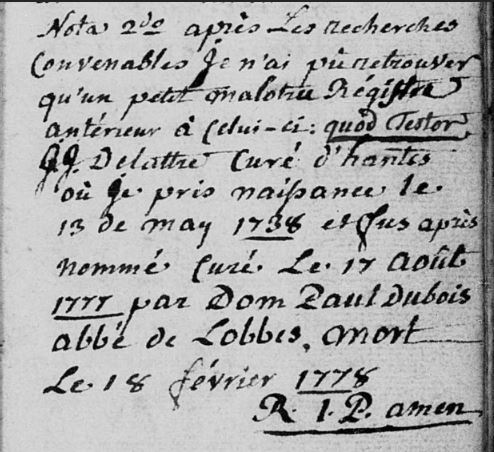 Nota 2do après Les recherches
Convenables Je n'ai pû retrouver
qu'un petit malotru Régistre
antérieur à Celui-ci: quod Testor
J.J. Delattre Curé d'hantes
où Je pris naissance le
13 de may 1738 et fus après
nommé Curé Le 17 Août
1777 par Dom Paul Dubois
abbé de Lobbes, mort
Le 18 février 1778
R. I. P. amen